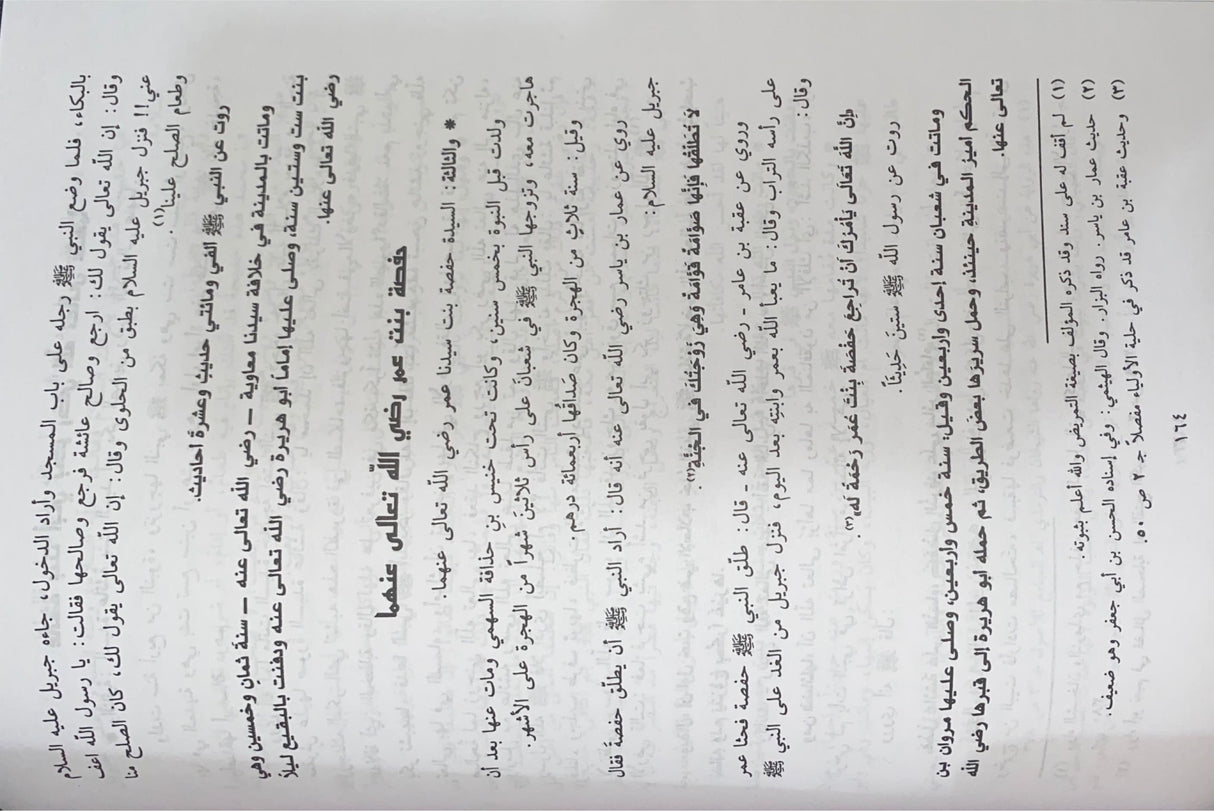 بالبكاء، فلما وضع النبي ﷺ رجله على باب المسجد وأراد الدخول، جاءه جبريل عليه السلام
وقال: إن الله تعالى يقول لك: ارجع وصالح عائشة فرجع وصالحها فقالت: يا رسول الله اعف
عني!! فنزل جبريل عليه السلام بطبق من الحلوى وقال: إن الله تعالى يقول لك، كان الصلح منا
وطعام الصلح علينا(١).
روت عن النبي ﷺ ألفي ومائتي حديث وعشرة أحاديث.
وماتت بالمدينة في خلافة سيدنا معاوية - رضي الله تعالى عنه - سنة ثمان وخمسين وهي
بنت ست وستين سنة، وصلى عليها إماماً أبو هريرة رضي الله تعالى عنه ودفنت بالبقيع ليلاً
رضي الله تعالى عنها.
حفصة بنت عمر رضي الله تعالى عنهما
* والثالثة: السيدة حفصة بنت سيدنا عمر رضي الله تعالى عنهما.
ولدت قبل النبوة بخمس سنين، وكانت تحت خنيس بن حذافة السهمي ومات عنها بعد أن
هاجرت معه، وتزوجها النبي ﷺ في شعبان على رأس ثلاثين شهراً من الهجرة على الأشهر.
وقيل: سنة ثلاث من الهجرة وكان صداقها أربعمائة درهم.
روي عن عمار بن ياسر رضي الله تعالى عنه أنه قال: أراد النبي ﷺ أن يطلّق حفصة فقال
جبريل عليه السلام:
لا تُطَلِّقْهَا فَإِنَّهَا صَوَّامَةٌ قَوَّامَةٌ وَهِيَ زَوْجَتُكَ فِي الجَنَّةِ(٢).
وروي عن عقبة بن عامر - رضي الله تعالى عنه - قال: طلّق النبي ﷺ حفصة فحثا عمر
على رأسه التراب وقال: ما يعبأ الله بعمر وابنته بعد اليوم، فنزل جبريل من الغد على النبي ﷺ
وقال:
فإنَّ اللهَ تَعَالَى يَأْمُرُكَ أَنْ تُرَاجِعَ حَفْصَةَ بِنْتَ عُمَرَ رَحْمَةً لَهُ(٣).
روت عن رسول الله ﷺ سِتِّينَ حَدِيثاً.
وماتت في شعبان سنة إحدى وأربعين وقيل: سنة خمس وأربعين، وصلى عليها مروان بن
الحكم أمير المدينة حينئذ، وحمل سريرها بعض الطريق، ثم حمله أبو هريرة إلى قبرها رضي الله
تعالى عنها.
(١) لم أقف له على سند وقد ذكره المؤلف بصيغة التمريض والله أعلم بثبوته.
(٢) حديث عمار بن ياسر. رواه البزار. وقال الهيثمي: وفي إسناده الحسن بن أبي جعفر وهو ضعيف.
(٣) وحديث عقبة بن عامر قد ذكر في حلية الأولياء مفصلاً جـ ٢ ص ٥٠.
١٦٤